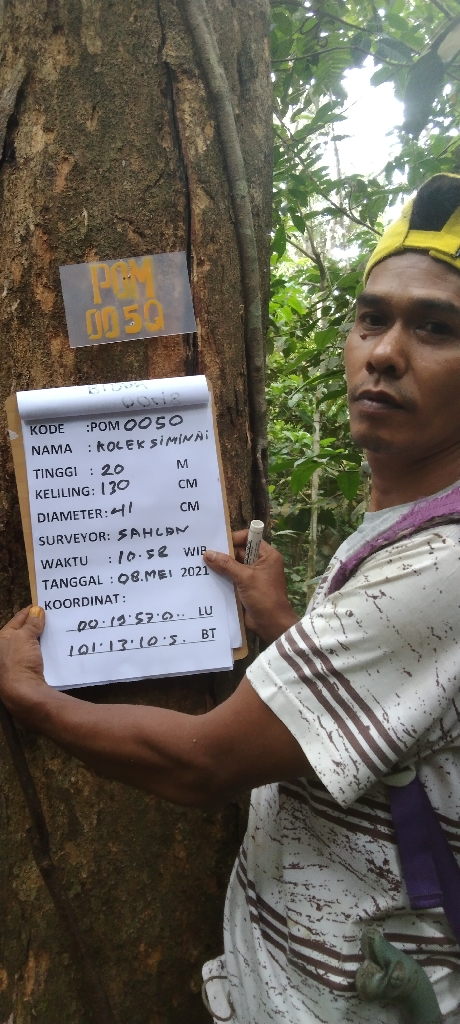 POM
0050
KODE :POM 0050
NAMA : KOLEK SIMINAI
TINGGI : 20 M
KELILING: 130 CM
DIAMETER: 41 CM
SURVEYOR: SAHLAN
WAKTU : 10.58 WIB
TANGGAL : 08.MEI 2021
KOORDINAT :
00.19.57.0.. LU
101.13.10.5. BT